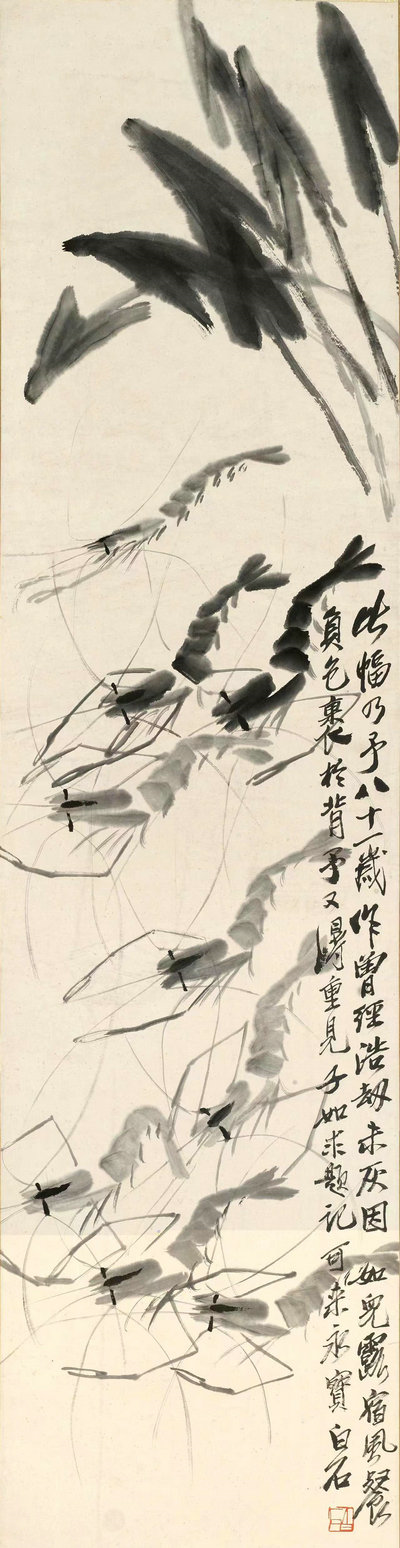 此幅乃予八十一歲作曾經浩劫未灰因如兒露宿風餐
負包裹於背予又得重見子如求題記可感永寶白石